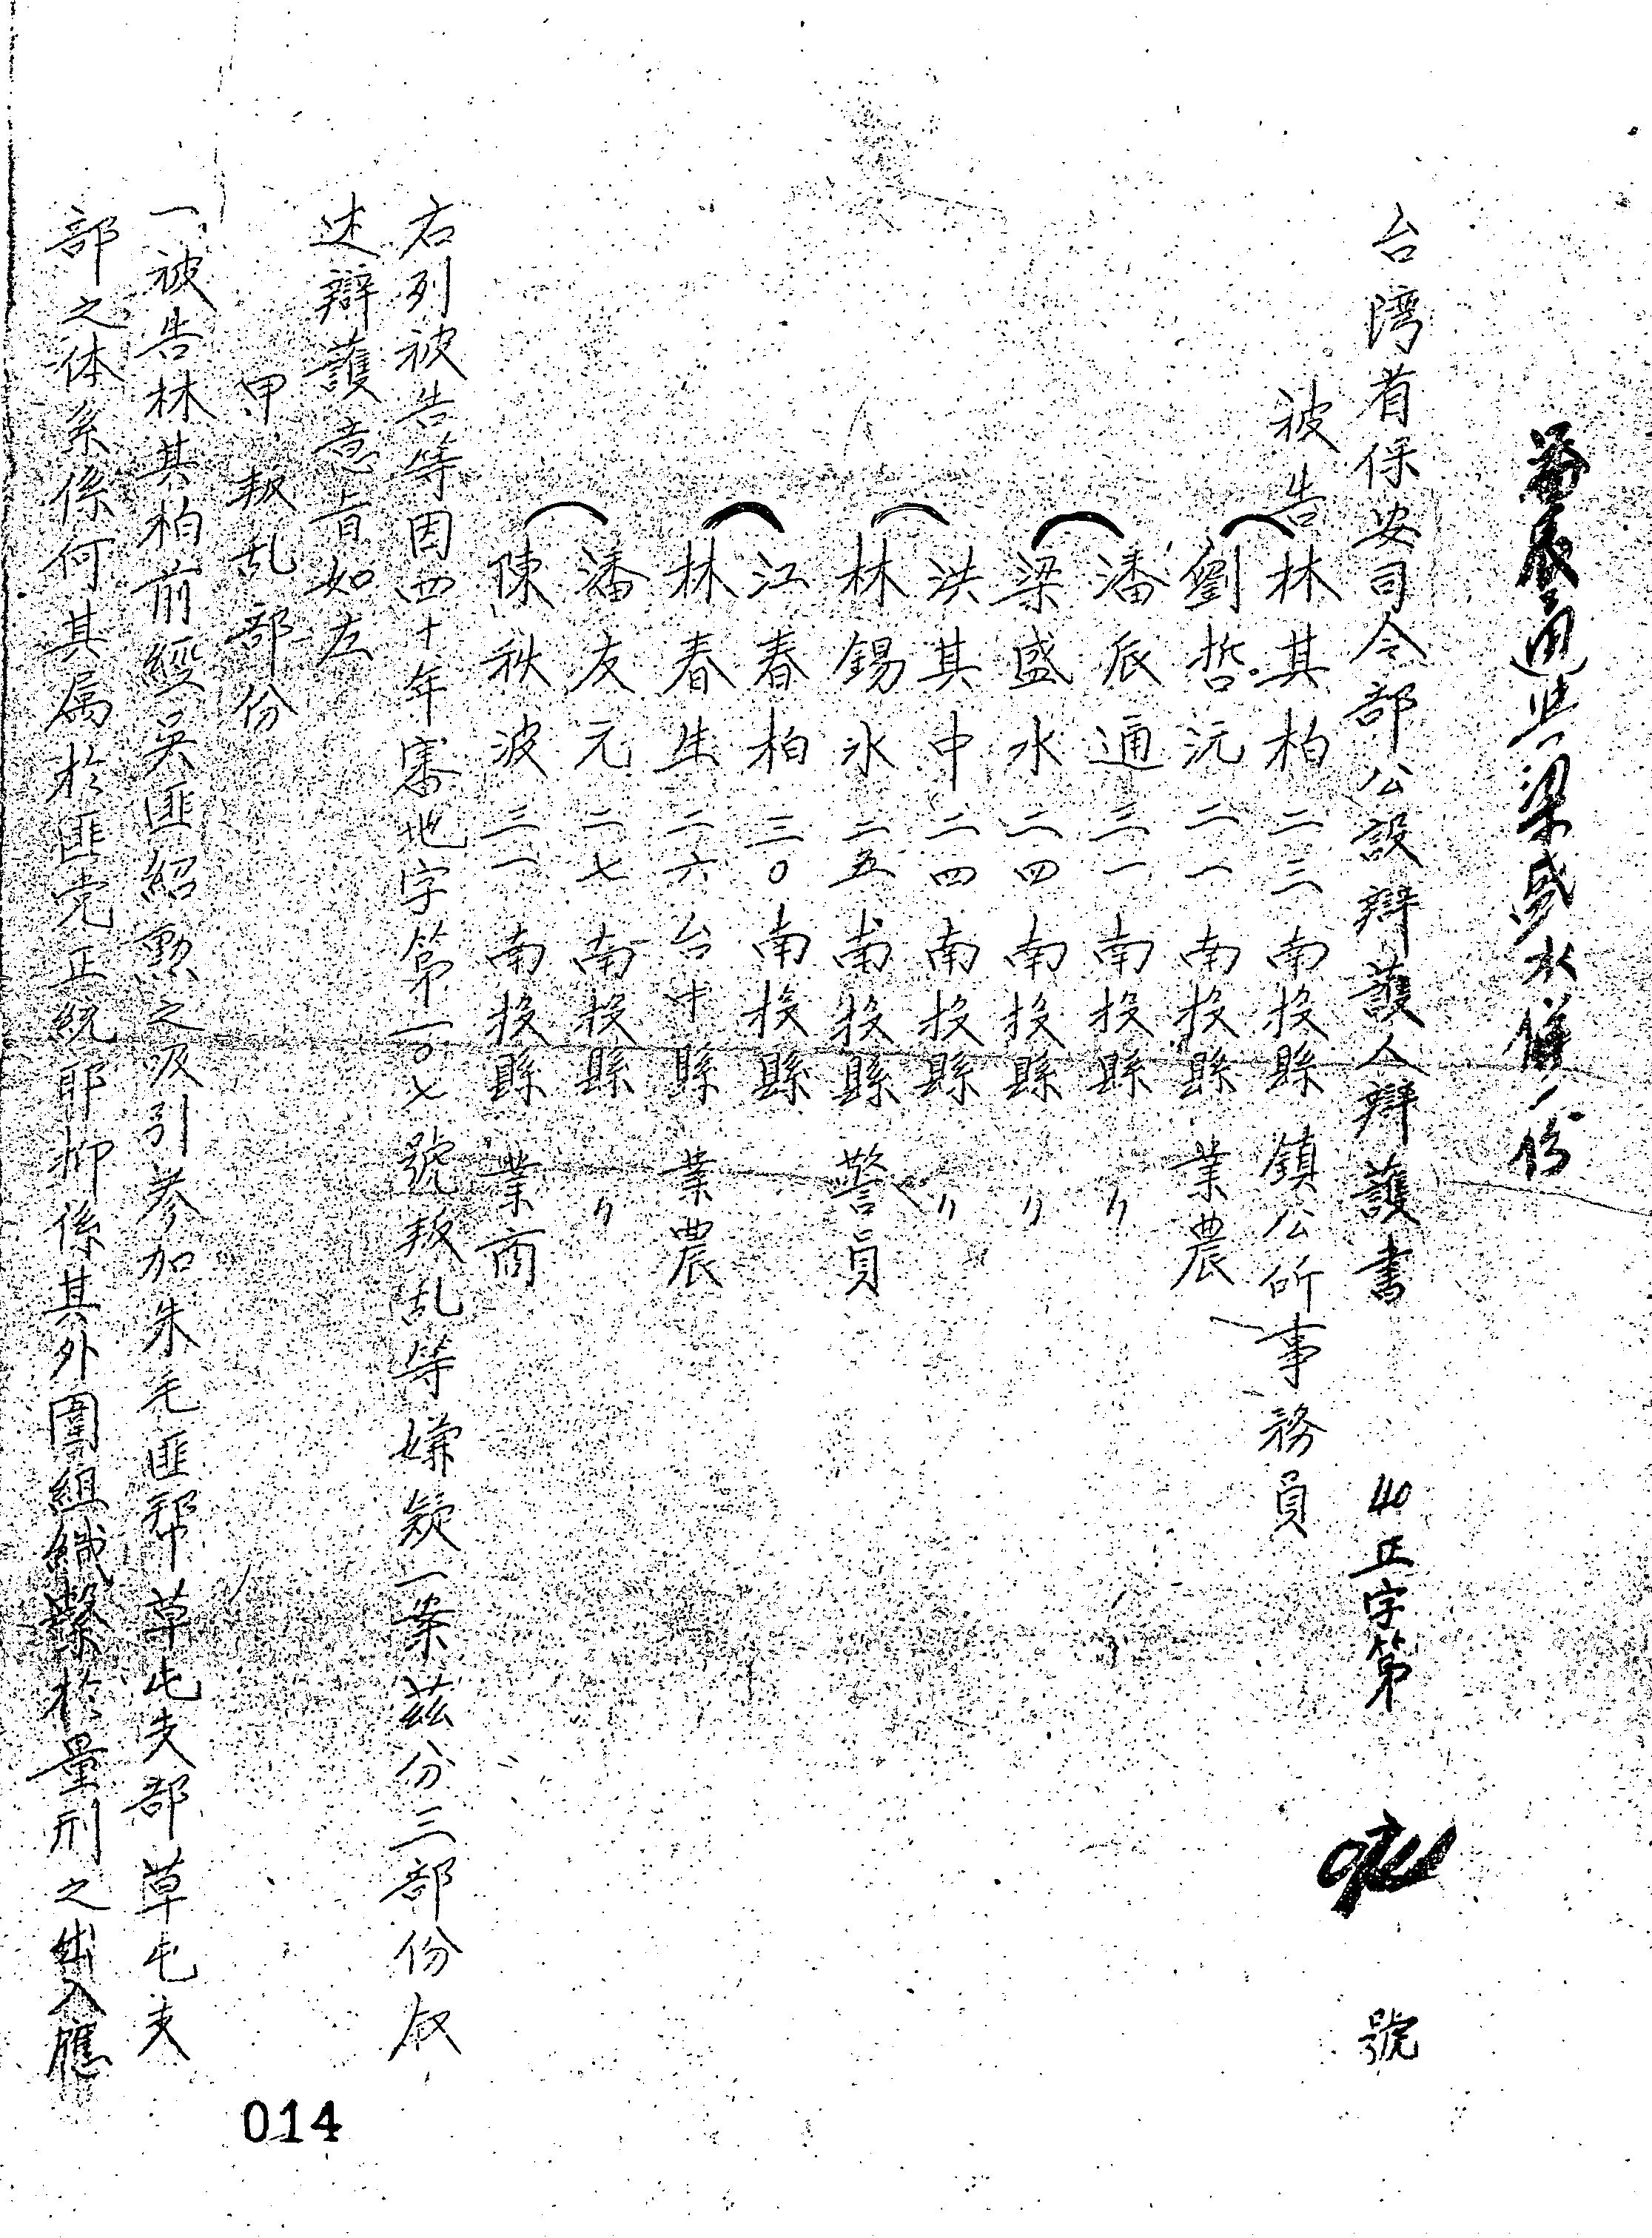 潘辰通與梁盛水繕一份
台湾省保安司令部公設辯護人辯護書 40正字第 號
被告 林其柏 二三 南投縣 鎮公所事務員
劉哲沅 二一 南投縣 業農
潘辰通 三一 南投縣 〃
梁盛水 二四 南投縣 〃
洪其中 二四 南投縣 〃
林錫水 二五 南投縣 警員
江春柏 三〇 南投縣
林春生 二六 台中縣 業農
潘友元 二七 南投縣 〃
陳秋波 三一 南投縣 業商
右列被告等因四十年審地字第一〇七號叛乱等嫌疑一案茲分三部份叙
述辯護意旨如左
甲、叛乱部份
一、被告林其柏前經吳匪紹勲之吸引参加朱毛匪帮草屯支部草屯支
部之体系係何其属於匪党正統耶抑係其外圍組織繫於量刑之出入應
014